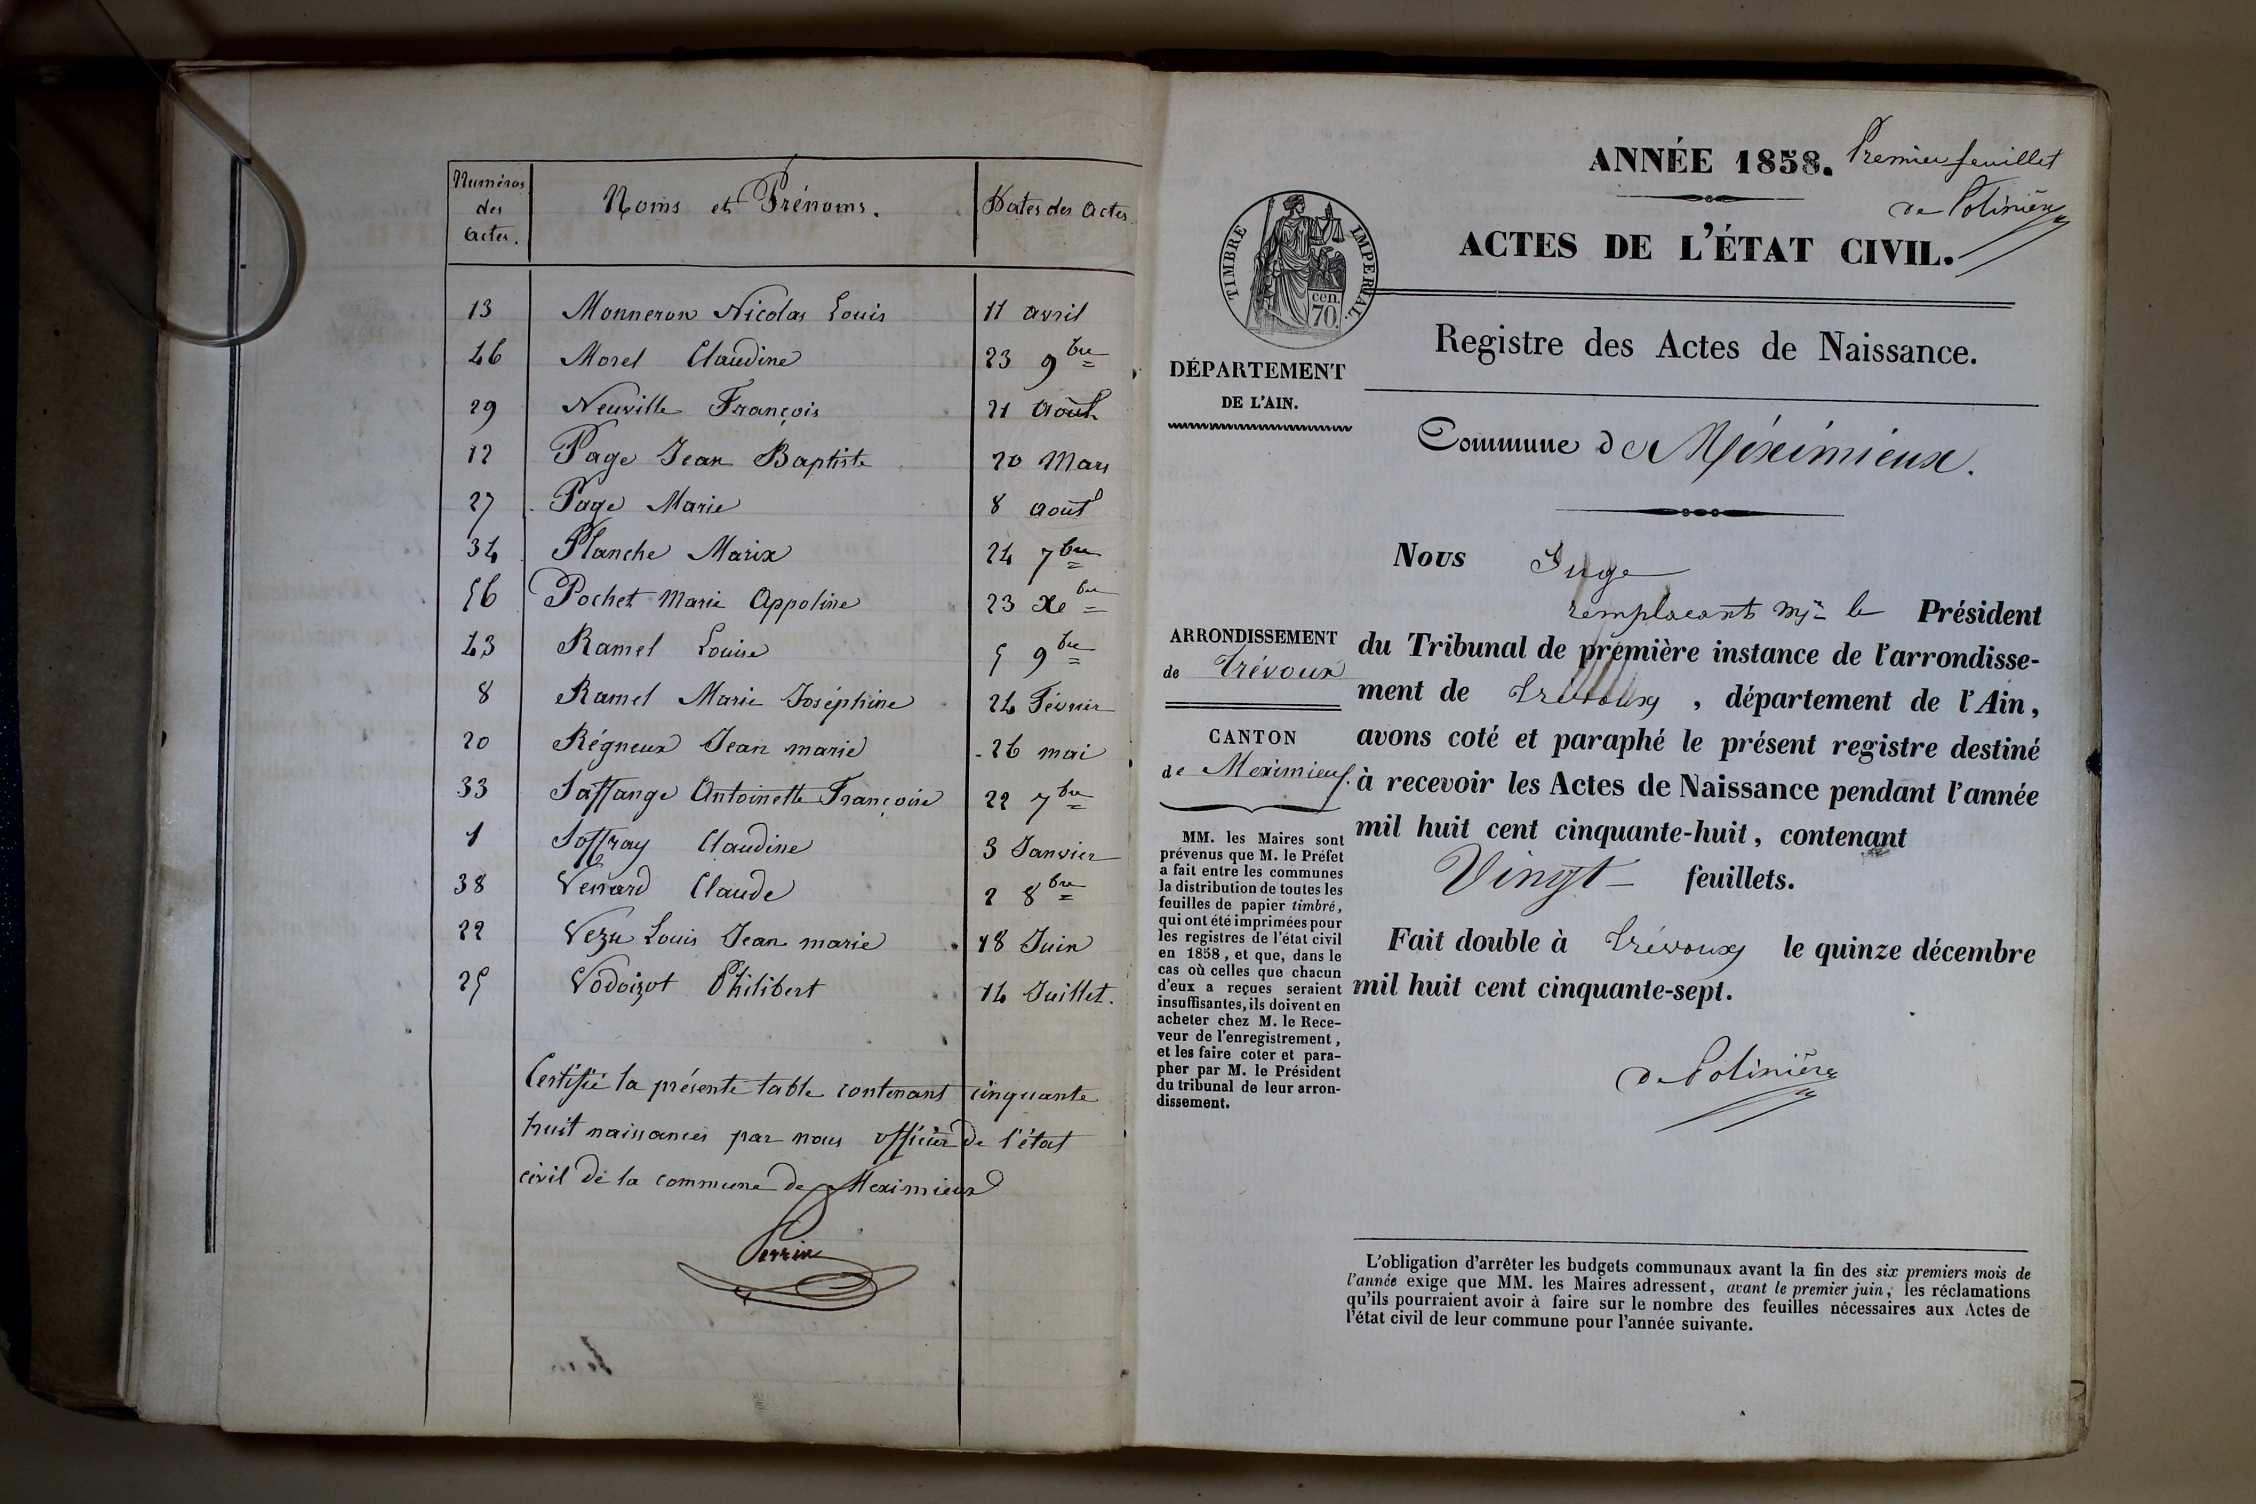 Numéros
des
Actes.
Noms et Prénoms.
Dates des Actes
13 Monneron Nicolas Louis 11 avril
46 Morel Claudine 23 9bre
29 Neuville François 21 Août
12 Page Jean Baptiste 20 Mars
27 Page Marie 8 août
34 Planche Maria 24 7bre
56 Pochet Marie Appoline 23 Xebre
43 Ramel Louise 5 9bre
8 Ramel Marie Joséphine 24 Février
20 Régneux Jean marie 26 mai
33 Saffange Antoinette Françoise 22 7bre
1 Soffray Claudine 3 Janvier
38 Venard Claude 2 8bre
22 Vezu Louis Jean marie 18 Juin
25 Vodoizot Philibert 14 Juillet.
Certifié la présente table contenant cinquante
huit naissances par nous officier de l'état
civil de la commune de Meximieux
Perrin
ANNÉE 1858.
Premier feuillet
de Poliniére
ACTES DE L'ÉTAT CIVIL.
TIMBRE IMPERIAL.
cen.
70.
Registre des Actes de Naissance.
DÉPARTEMENT
DE L'AIN.
Commune de Méximieux.
Nous Juge
remplaçant Mr le Président
du Tribunal de première instance de l'arrondisse-
ment de Trévoux, département de l'Ain,
avons coté et paraphé le présent registre destiné
à recevoir les Actes de Naissance pendant l'année
mil huit cent cinquante-huit, contenant
Vingt feuillets.
Fait double à Trévoux le quinze décembre
mil huit cent cinquante-sept.
de Poliniére
ARRONDISSEMENT
de Trévoux
CANTON
de Meximieux.
MM. les Maires sont
prévenus que M. le Préfet
a fait entre les communes
la distribution de toutes les
feuilles de papier timbré,
qui ont été imprimées pour
les registres de l'état civil
en 1858, et que, dans le
cas où celles que chacun
d'eux a reçues seraient
insuffisantes, ils doivent en
acheter chez M. le Rece-
veur de l'enregistrement,
et les faire coter et para-
pher par M. le Président
du tribunal de leur arron-
dissement.
L'obligation d'arrêter les budgets communaux avant la fin des six premiers mois de
l'année exige que MM. les Maires adressent, avant le premier juin, les réclamations
qu'ils pourraient avoir à faire sur le nombre des feuilles nécessaires aux Actes de
l'état civil de leur commune pour l'année suivante.